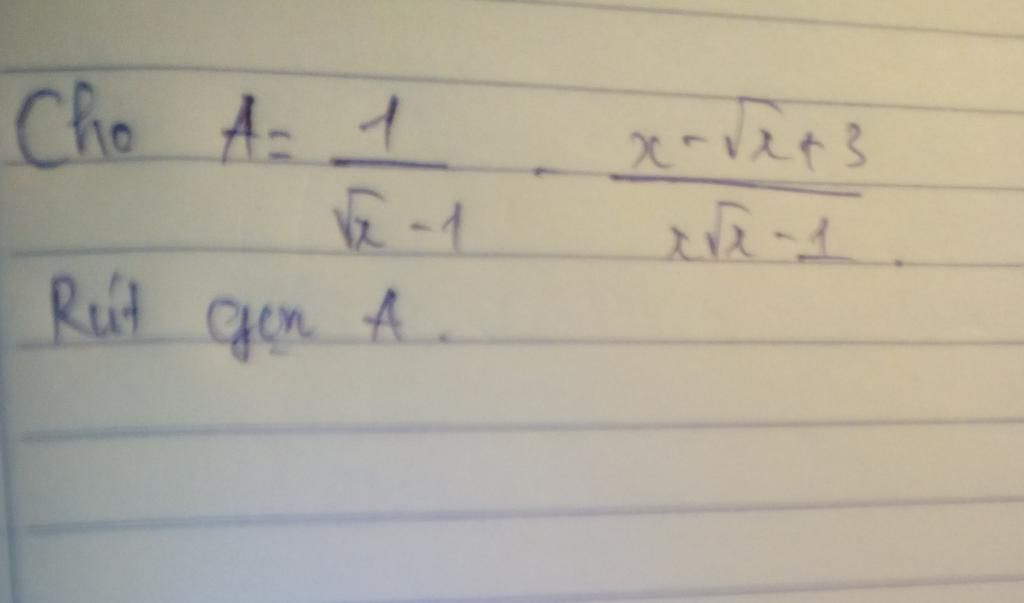 Cho A = \frac{1}{\sqrt{x} - 1} - \frac{x - \sqrt{x} + 3}{x\sqrt{x} - 1}.
Rút gọn A.